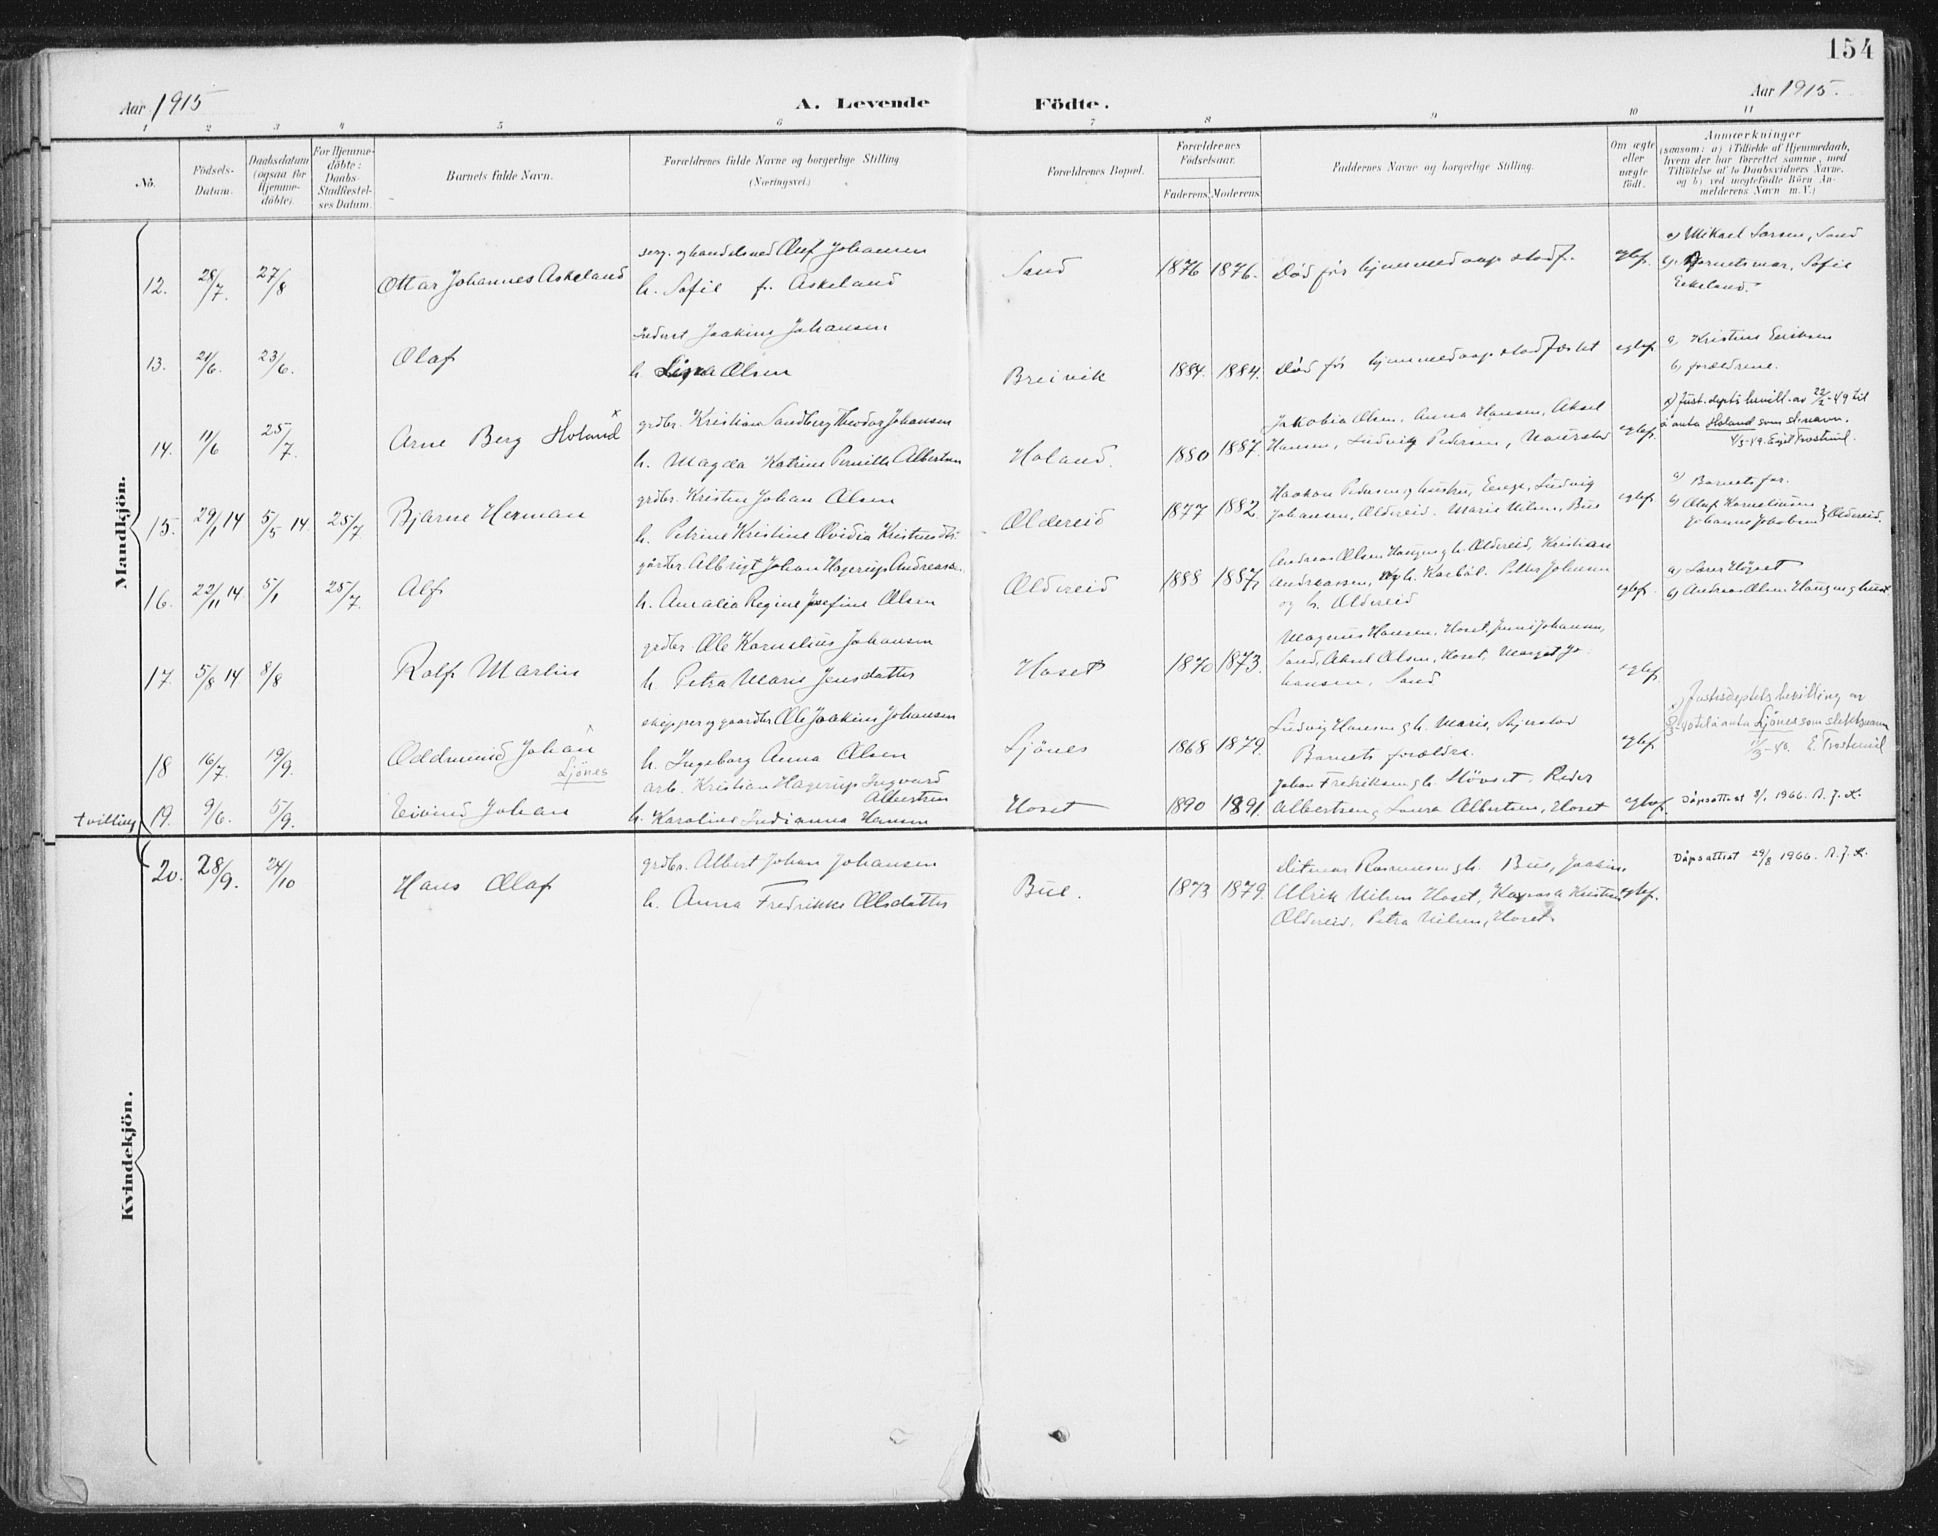 154
Aar 1915
A. Levende Födte.
Aar 1915.
1 2 3 4 5 6 7 8 9 10 11
No.
Födsels-
Datum.
Daabsdatum
(ogsaa for
Hjemme-
döbte).
For Hjemme-
döbte:
Daabs-
Stadfestel-
ses Datum.
Barnets fulde Navn.
Forældrenes fulde Navne og borgerlige Stilling
(Næringsvei.)
Forældrenes Bopæl.
Forældrenes
Födselsaar.
Faderens. Moderens.
Faddernes Navne og borgerlige Stilling.
Om ægte
eller
uægte
født.
Anmærkninger
(saasom: a) i Tilfælde af Hjemmedaab,
hvem der har forrettet samme, med
Tilföielse af to Daabsvidners Navne.
og b) ved uægtefödte Börn An-
melderens Navn m. V.)
Mandkjön.
12. 28/7. 27/8 Ottar Johannes Askeland
Oluf Johansen
h. Sofie f. Askeland
Sand 1876 1876. Død før egtef.
a) Mikael Larsen, Sand
Sofie
13. 21/6. 23/6. Olaf
Inderst Joakim Johansen
h. Olsen
Breivik 1884. 1884. Død før egtef.
a. Kristine Eriksen
b) forældrene.
14. 11/6 25/7. Arne Berg Holand x
grdbr. Kristian Sandberg Theodor Johansen
h. Magda Katrine Pernille Albertsen
Holand. 1880 1887.
Jakobia Olsen, Anna Hansen, Aksel
Hansen, Ludvig Pedersen, egtef.
x) Just.dept's bevill. av 22/2-49 til
å anta Holand som sl.navn.
4/3-49. Egil Frostmil.
15. 29/1 14 5/5 14. 25/7 Bjarne Herman
grdbr. Kristen Johan Olsen
h. Petrine Kristine Ovidia Kristensdtr.
Oldereid 1877 1882.
Haakon Pedersen og hustru, Ludvig
Johansen, Oldereid. Marie Nilsen, Bue egtef.
a) Barnets far.
b) Olaf Korneliusen
Johanne Jakobsen } Oldereid.
16. 22/11 14. 5/1 25/7. Alf
gårdbr. Albrigt Johan Hagerup Andreassen
h. Amalia Regine Josefine Olsen
Oldereid 1888 1887.
Andreas Olsen Haugen og h. Oldereid, Kristian
Andreassen, og h. Karbøl. Peter Johansen
og h. Oldereid egtef.
a) Lærer Høyset
b) Andreas Olsen Haugen og hustr.
17. 5/8 14 8/8 Rolf Martin
grdbr. Ole Kornelius Johansen
h. Petra Marie Jensdatter
Hoset 1870 1873.
Magnus Hansen, Hoset, Johansen,
Sand, Olsen, Hoset, Jo-
hansen, Sand egtef.
18 16/7. 19/9. Oddmund Johan x
Ljönes
skipper og gaardbr. Ole Joakim Johansen
h. Ingeborg Anna Olsen
Ljönes 1868 1879.
Ludvig Hansen og h. Marie,
Barnets forældre. egtef.
x) Justisdeptets bevilling av
til å anta Ljönes som slektsnavn
1/3-40. E. Frostmil
tvilling 19. 9/6. 5/9. Eivind Johan
arb. Kristian Hagerup Ingvard
Albertsen
h. Karoline Indianna Hansen
Hoset 1890 1891.
Johan Fredriksen og h. Hövset, Peder
Albertsen, Laura Albertsen, Hoset egtef.
Dåpsattest 8/1 1966. A.J.L.
Kvindekjön.
20. 28/9. 24/10 Hans Olaf
grdbr. Albert Johan Johansen
h. Anna Fredrikke Olsdatter
Bue. 1873 1879.
Ditmar Rasmussen og h. Bue, Joakim
Ulrik Nilsen Hoset, Kristine
Oldereid, Petra Nilsen, Hoset egtef.
Dåpsattest 29/8 1966. A.J.L.